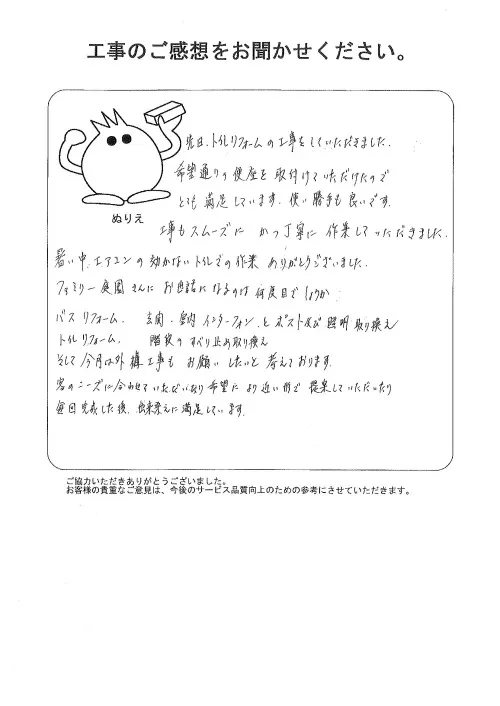 工事のご感想をお聞かせください。
先日、トイレリフォームの工事をしていただきました。
希望通りの便座を取付けていただけたので
とても満足しています。使い勝手も良いです。
ぬりえ
工事もスムーズに かつ丁寧に 作業していただきました。
暑い中、エアコンの効かないトイレでの作業 ありがとうございました。
ファミリー庭園さんに お世話になるのは 何度目でしょうか
バスリフォーム、 玄関・室内 インターフォン、と ポスト及び 照明 取り換え
トイレリフォーム、 階段の すべり止め取り換え
そして 今月は外構工事も お願いしたいと 考えております。
客のニーズに合わせていただいたり 希望に より近い形で 提案していただいたり
毎回完成した後、出来栄えに満足しています。
ご協力いただきありがとうございました。
お客様の貴重なご意見は、今後のサービス品質向上のための参考にさせていただきます。